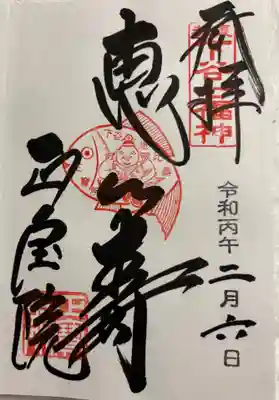 奉拝
下谷七福神
令和丙午二月六日
恵比寿
正宝院